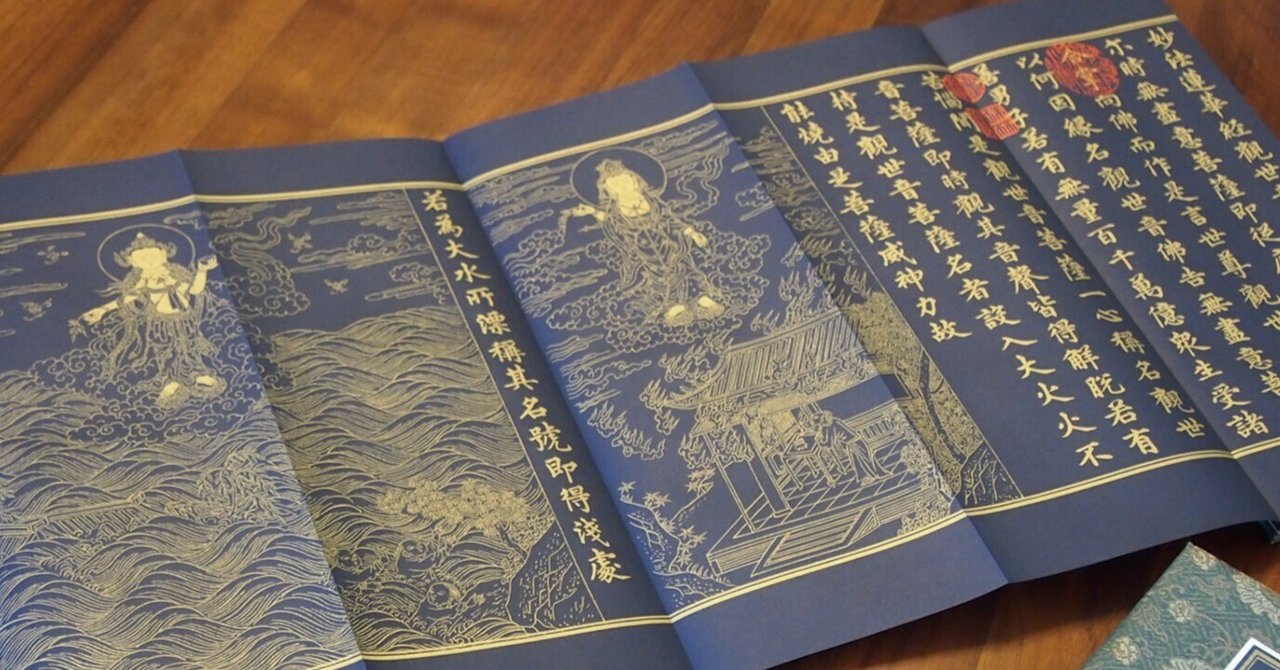 妙法蓮華經觀世
尒時無盡意菩薩即從
向佛而作是言世尊觀世
以何因緣名觀世音佛告無盡意菩
善男子若有無量百千萬億眾生受諸
苦惱聞是觀世音菩薩一心稱名觀世
音菩薩即時觀其音聲皆得解脫若有
持是觀世音菩薩名者設入大火火不
能燒由是菩薩威神力故
若為大水所漂稱其名號即得淺處